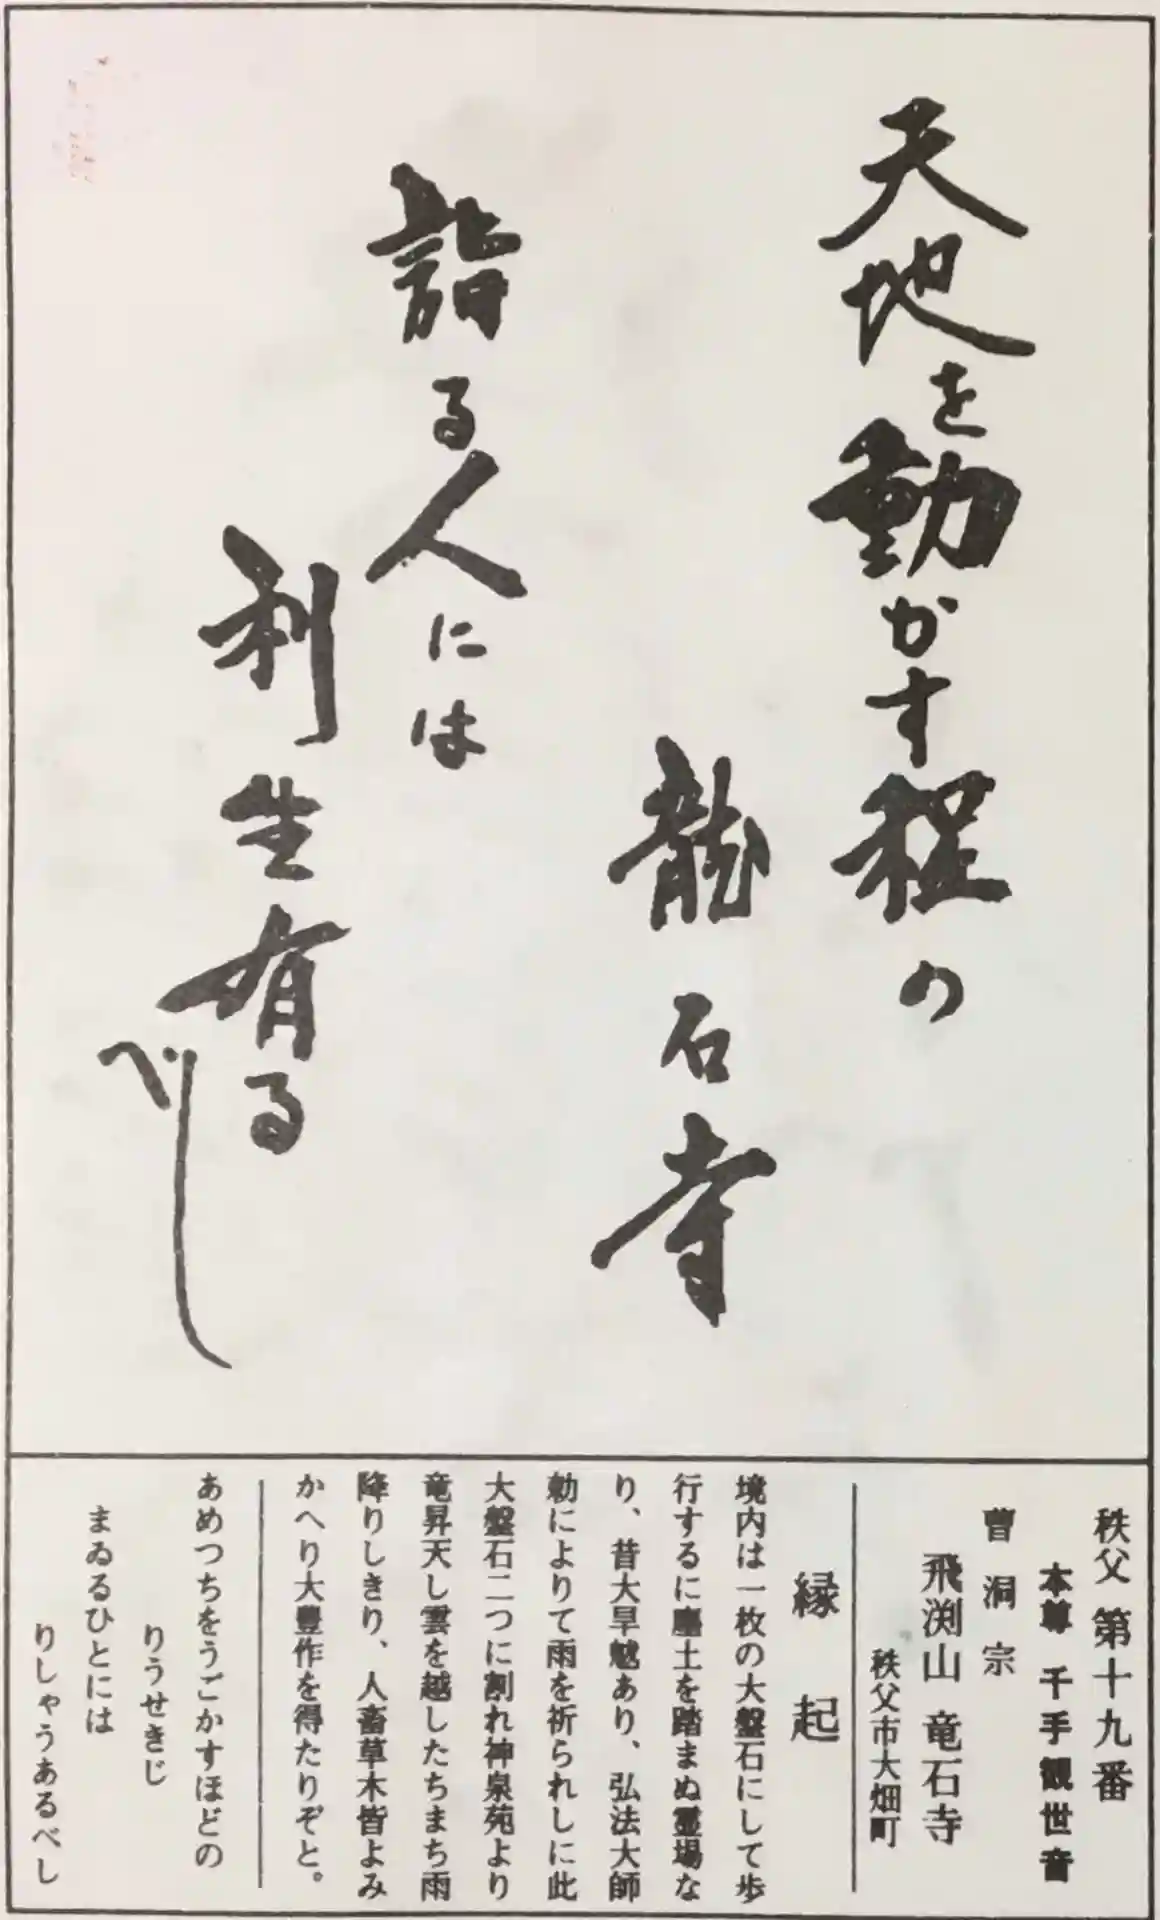 天地を動かす程の
龍石寺
詣る人には
利生有る
べし
秩父 第十九番
本尊 千手観世音
曹洞宗
飛渕山 竜石寺
秩父市大畑町
縁起
境内は一枚の大盤石にして歩
行するに塵土を踏まぬ霊場な
り、昔大旱魃あり、弘法大師
勅によりて雨を祈られしに此
大盤石二つに割れ神泉苑より
竜昇天し雲を越したちまち雨
降りしきり、人畜草木皆よみ
かへり大豊作を得たりぞと。
あめつちをうごかすほどの
りうせきじ
まゐるひとには
りしゃうあるべし